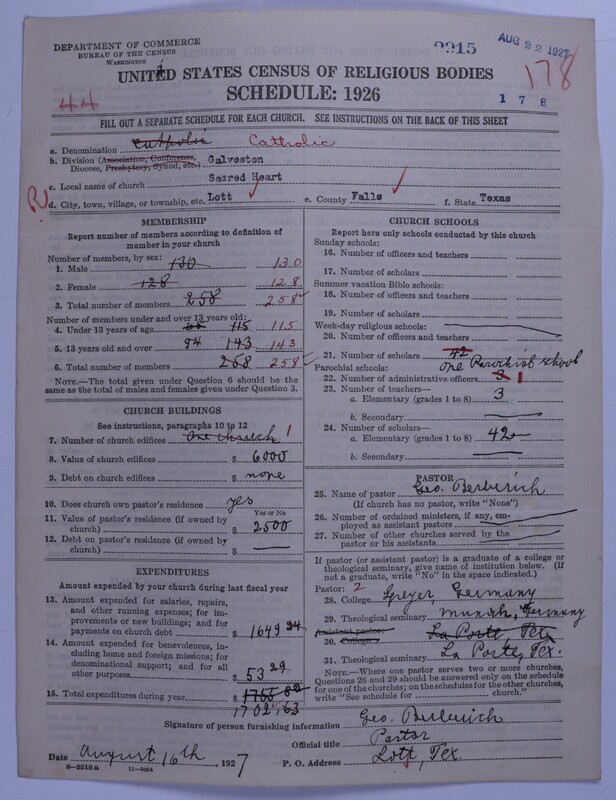 DEPARTMENT OF COMMERCE
BUREAU OF THE CENSUS
WASHINGTON
9915
AUG 22 1927
178
UNITED STATES CENSUS OF RELIGIOUS BODIES
SCHEDULE: 1926
44
1 7 8
FILL OUT A SEPARATE SCHEDULE FOR EACH CHURCH. SEE INSTRUCTIONS ON THE BACK OF THIS SHEET
a. Denomination Catholic Catholic
b. Division (Association, Conference, Diocese, Presbytery, Synod, etc.) Galveston
c. Local name of church Sacred Heart
d. City, town, village, or township, etc. Lott e. County Falls f. State Texas
MEMBERSHIP
Report number of members according to definition of
member in your church
Number of members, by sex:
1. Male 130 130
2. Female 128 128
3. Total number of members 258 258
Number of members under and over 13 years old:
4. Under 13 years of age 115 115
5. 13 years old and over 94 143 143
6. Total number of members 258 258
NOTE.—The total given under Question 6 should be the
same as the total of males and females given under Question 3.
CHURCH BUILDINGS
See instructions, paragraphs 10 to 12
7. Number of church edifices One church 1
8. Value of church edifices $ 6000
9. Debt on church edifices $ none
10. Does church own pastor's residence? yes
Yes or No
11. Value of pastor's residence (if owned by
church) $ 2500
12. Debt on pastor's residence (if owned by
church) $
EXPENDITURES
Amount expended by your church during last fiscal year
13. Amount expended for salaries, repairs,
and other running expenses; for improvements
or new buildings; and for
payments on church debt $ 1649 34
14. Amount expended for benevolences, including
home and foreign missions; for
denominational support; and for all
other purposes $ 53 29
15. Total expenditures during year $
1702.63
CHURCH SCHOOLS
Report here only schools conducted by this church
Sunday schools:
16. Number of officers and teachers
17. Number of scholars
Summer vacation Bible schools:
18. Number of officers and teachers
19. Number of scholars
Week-day religious schools:
20. Number of officers and teachers
21. Number of scholars 42
Parochial schools: One Parochial school
22. Number of administrative officers 3 1
23. Number of teachers—
a. Elementary (grades 1 to 8) 3
b. Secondary
24. Number of scholars—
a. Elementary (grades 1 to 8) 42
b. Secondary
PASTOR
25. Name of pastor Geo. Berberich
(If church has no pastor, write "None")
26. Number of ordained ministers, if any, employed
as assistant pastors
27. Number of other churches served by the
pastor or his assistants
If pastor (or assistant pastor) is a graduate of a college or
theological seminary, give name of institution below. (If
not a graduate, write "No" in the space indicated.)
Pastor: 2
28. College Speyer, Germany
29. Theological seminary Munich, Germany
Assistant pastor:
30. College La Porte, Tex
31. Theological seminary La Porte, Tex.
NOTE.—Where one pastor serves two or more churches,
Questions 28 and 29 should be answered only on the schedule
for one of the churches; on the schedules for the other churches,
write "See schedule for church."
Signature of person furnishing information Geo. Berberich
Official title Pastor
Date August 16th, 1927 P. O. Address Lott, Tex
6-5518a 11-9054